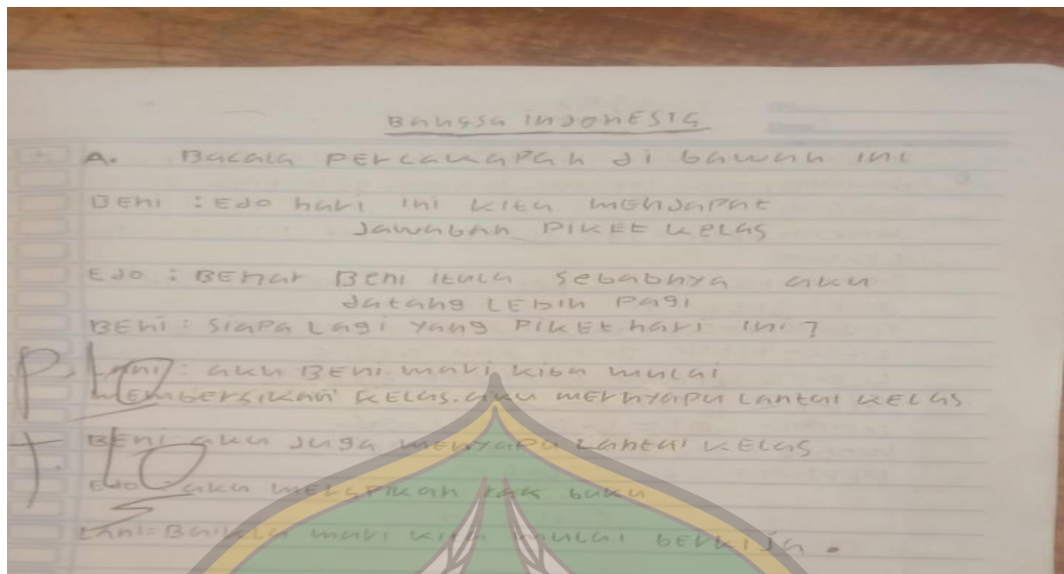 BAHASA INDONESIA
A. Bacala PERCAKAPAN di bawah ini
BEni : EJO hari ini kita mendapat
Jawaban PIKET KELAS
EJO : BEnar BEni itula sebabnya aku
datang LEbih Pagi
BEni : SIAPA Lagi Yang PIKET hari ini ?
Lani : aku BEni mari kiba mulai
mEmbERsikan KELAS. aku mErnyapu Lantai KELAS
BEni aku Juga mEnyapu Lantai KELAS
EJO aku mErapikan rak buku
Lani = Baikla mari kita mulai bERkiJa .